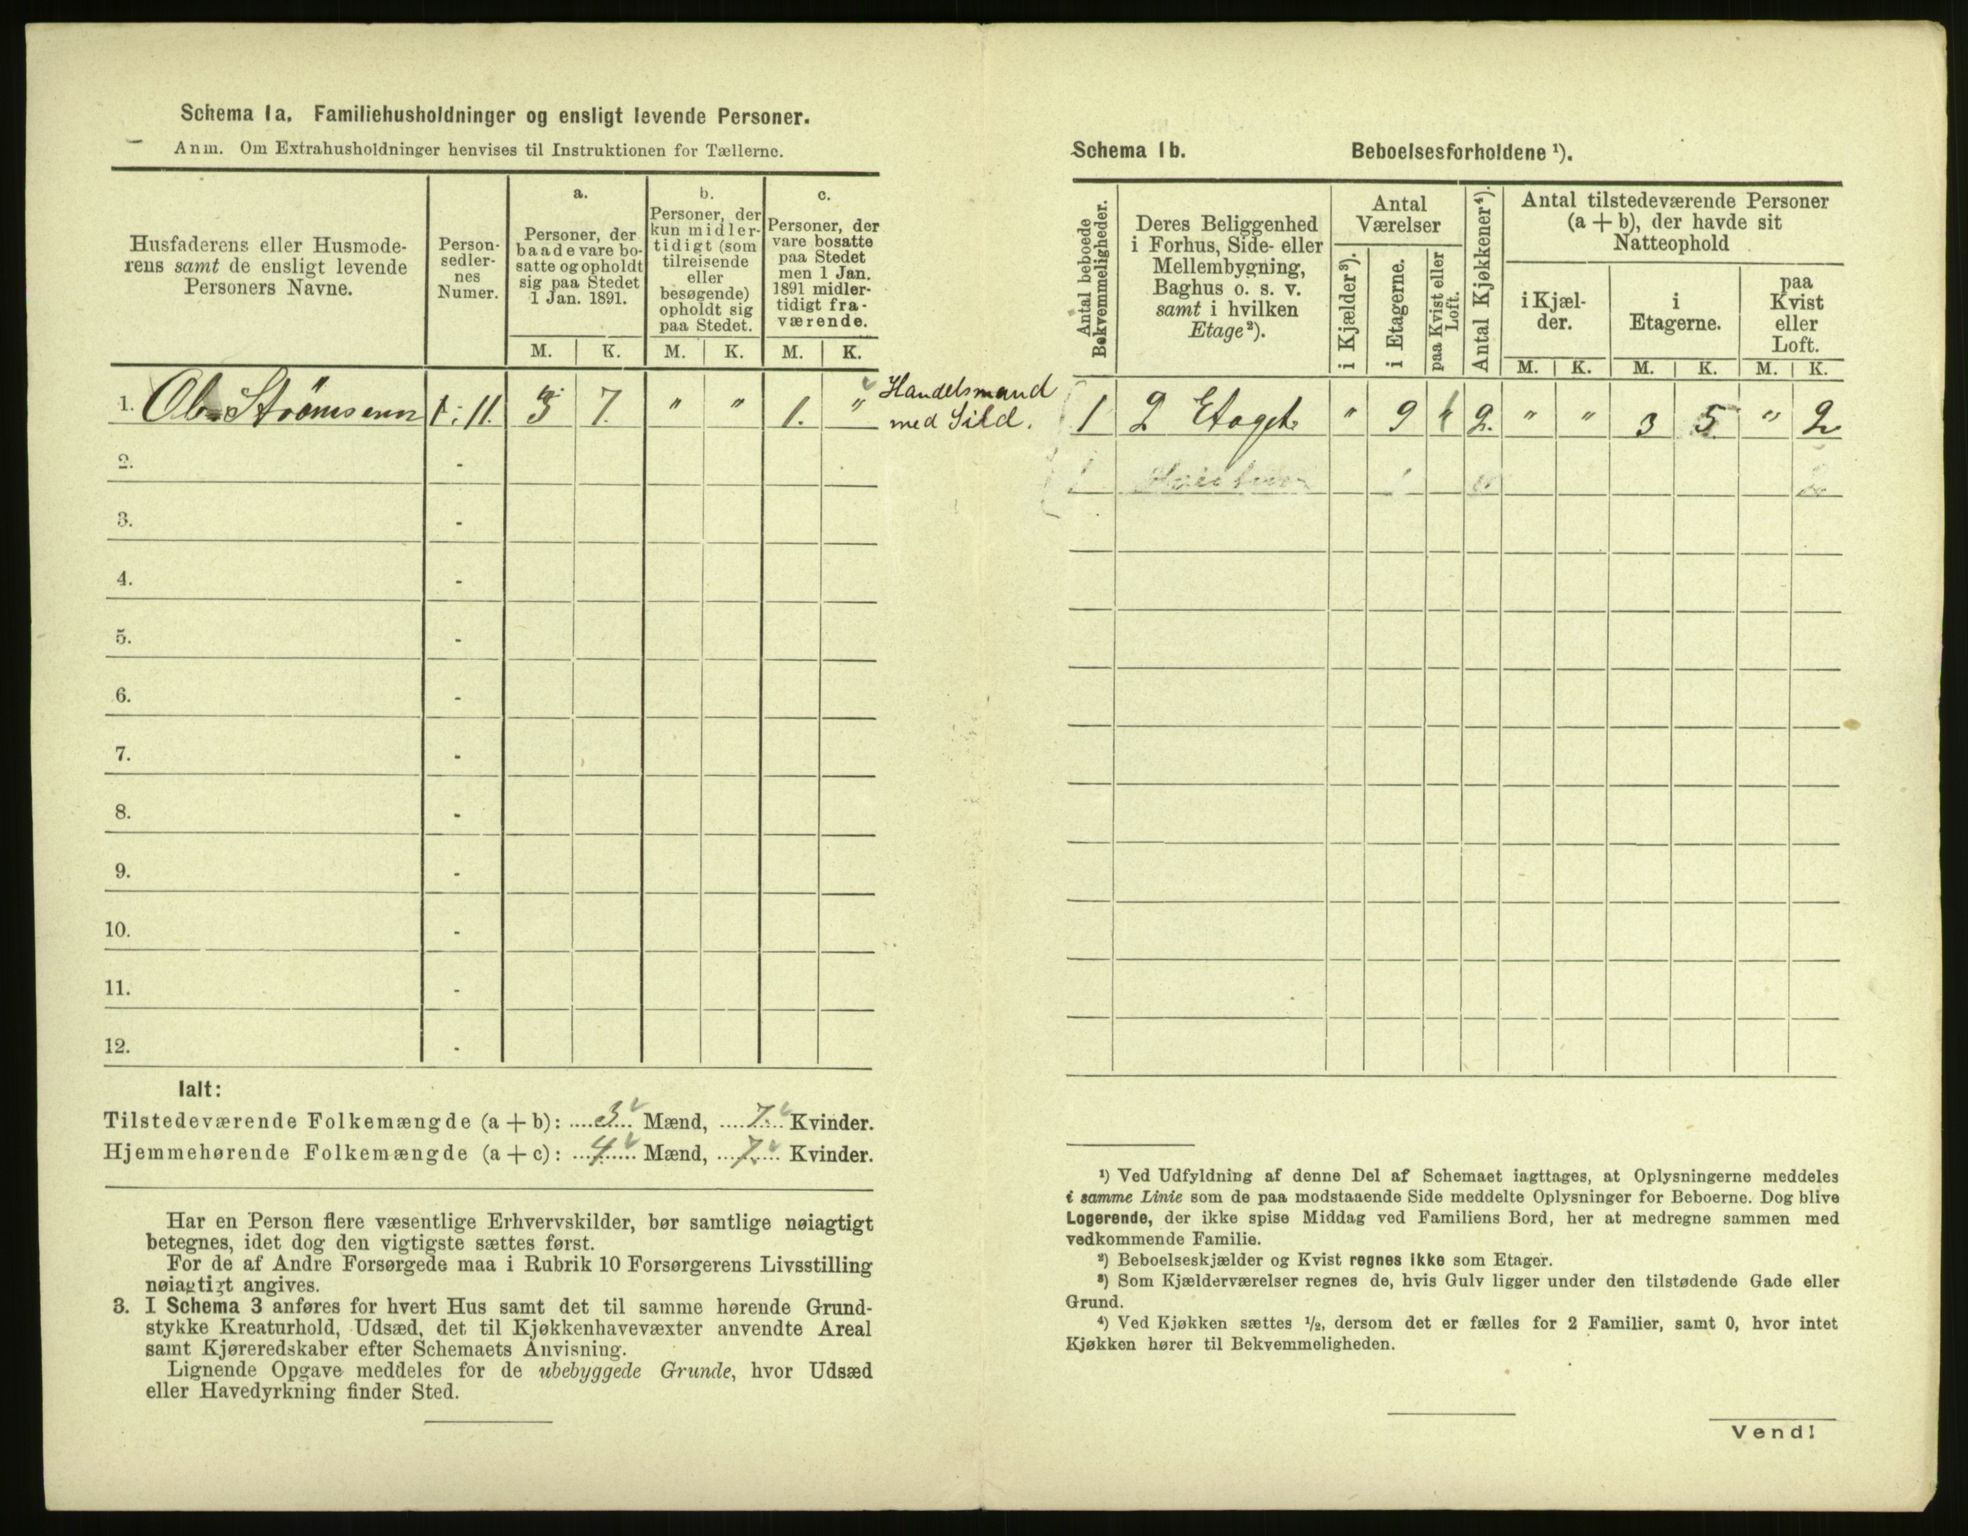 Schema 1a. Familiehusholdninger og ensligt levende Personer.
Anm. Om Extrahusholdninger henvises til Instruktionen for Tællerne.
Husfaderens eller Husmode-
rens samt de ensligt levende
Personers Navne.
Person-
sedler-
nes
Numer.
a.
Personer, der
baade vare bo-
satte og opholdt
sig paa Stedet
1 Jan. 1891.
b.
Personer, der
kun midler-
tidigt (som
tilreisende
eller
besøgende)
opholdt sig
paa Stedet.
c.
Personer, der
vare bosatte
paa Stedet
men 1 Jan.
1891 midler-
tidigt fra-
værende.
M. K. M. K. M. K.
1. Ole Strömsenn 1 - 11. 3 7. " " 1. " Handelsmand
med Sild.
2. -
3. -
4. -
5. -
6. -
7. -
8. -
9. -
10. -
11. -
12. -
Ialt:
Tilstedeværende Folkemængde (a + b): 3 Mænd, 7. Kvinder.
Hjemmehørende Folkemængde (a + c): 4 Mænd, 7. Kvinder.
Har en Person flere væsentlige Erhvervskilder, bør samtlige nøiagtigt
betegnes, idet dog den vigtigste sættes først.
For de af Andre Forsørgede maa i Rubrik 10 Forsørgerens Livsstilling
nøiagtigt angives.
3. I Schema 3 anføres for hvert Hus samt det til samme hørende Grund-
stykke Kreaturhold, Udsæd, det til Kjøkkenhavevæxter anvendte Areal
samt Kjøreredskaber efter Schemaets Anvisning.
Lignende Opgave meddeles for de ubebyggede Grunde, hvor Udsæd
eller Havedyrkning finder Sted.
Schema 1b. Beboelsesforholdene ¹).
Antal beboede
Bekvemmeligheder.
Deres Beliggenhed
i Forhus, Side- eller
Mellembygning,
Baghus o. s. v.
samt i hvilken
Etage²).
Antal
Værelser
i Kjælder³).
i Etagerne.
paa Kvist eller
Loft.
Antal Kjøkkener⁴).
Antal tilstedeværende Personer
(a + b), der havde sit
Natteophold
i Kjæl-
der.
i
Etagerne.
paa
Kvist
eller
Loft.
M. K. M. K. M. K.
1 2 Etager " 9 2. " " 3 5 " 2
¹) Ved Udfyldning af denne Del af Schemaet iagttages, at Oplysningerne meddeles
i samme Linie som de paa modstaaende Side meddelte Oplysninger for Beboerne. Dog blive
Logerende, der ikke spise Middag ved Familiens Bord, her at medregne sammen med
vedkommende Familie.
²) Beboelseskjælder og Kvist regnes ikke som Etager.
³) Som Kjælderværelser regnes de, hvis Gulv ligger under den tilstødende Gade eller
Grund.
⁴) Ved Kjøkken sættes ½, dersom det er fælles for 2 Familier, samt 0, hvor intet
Kjøkken hører til Bekvemmeligheden.
Vend!